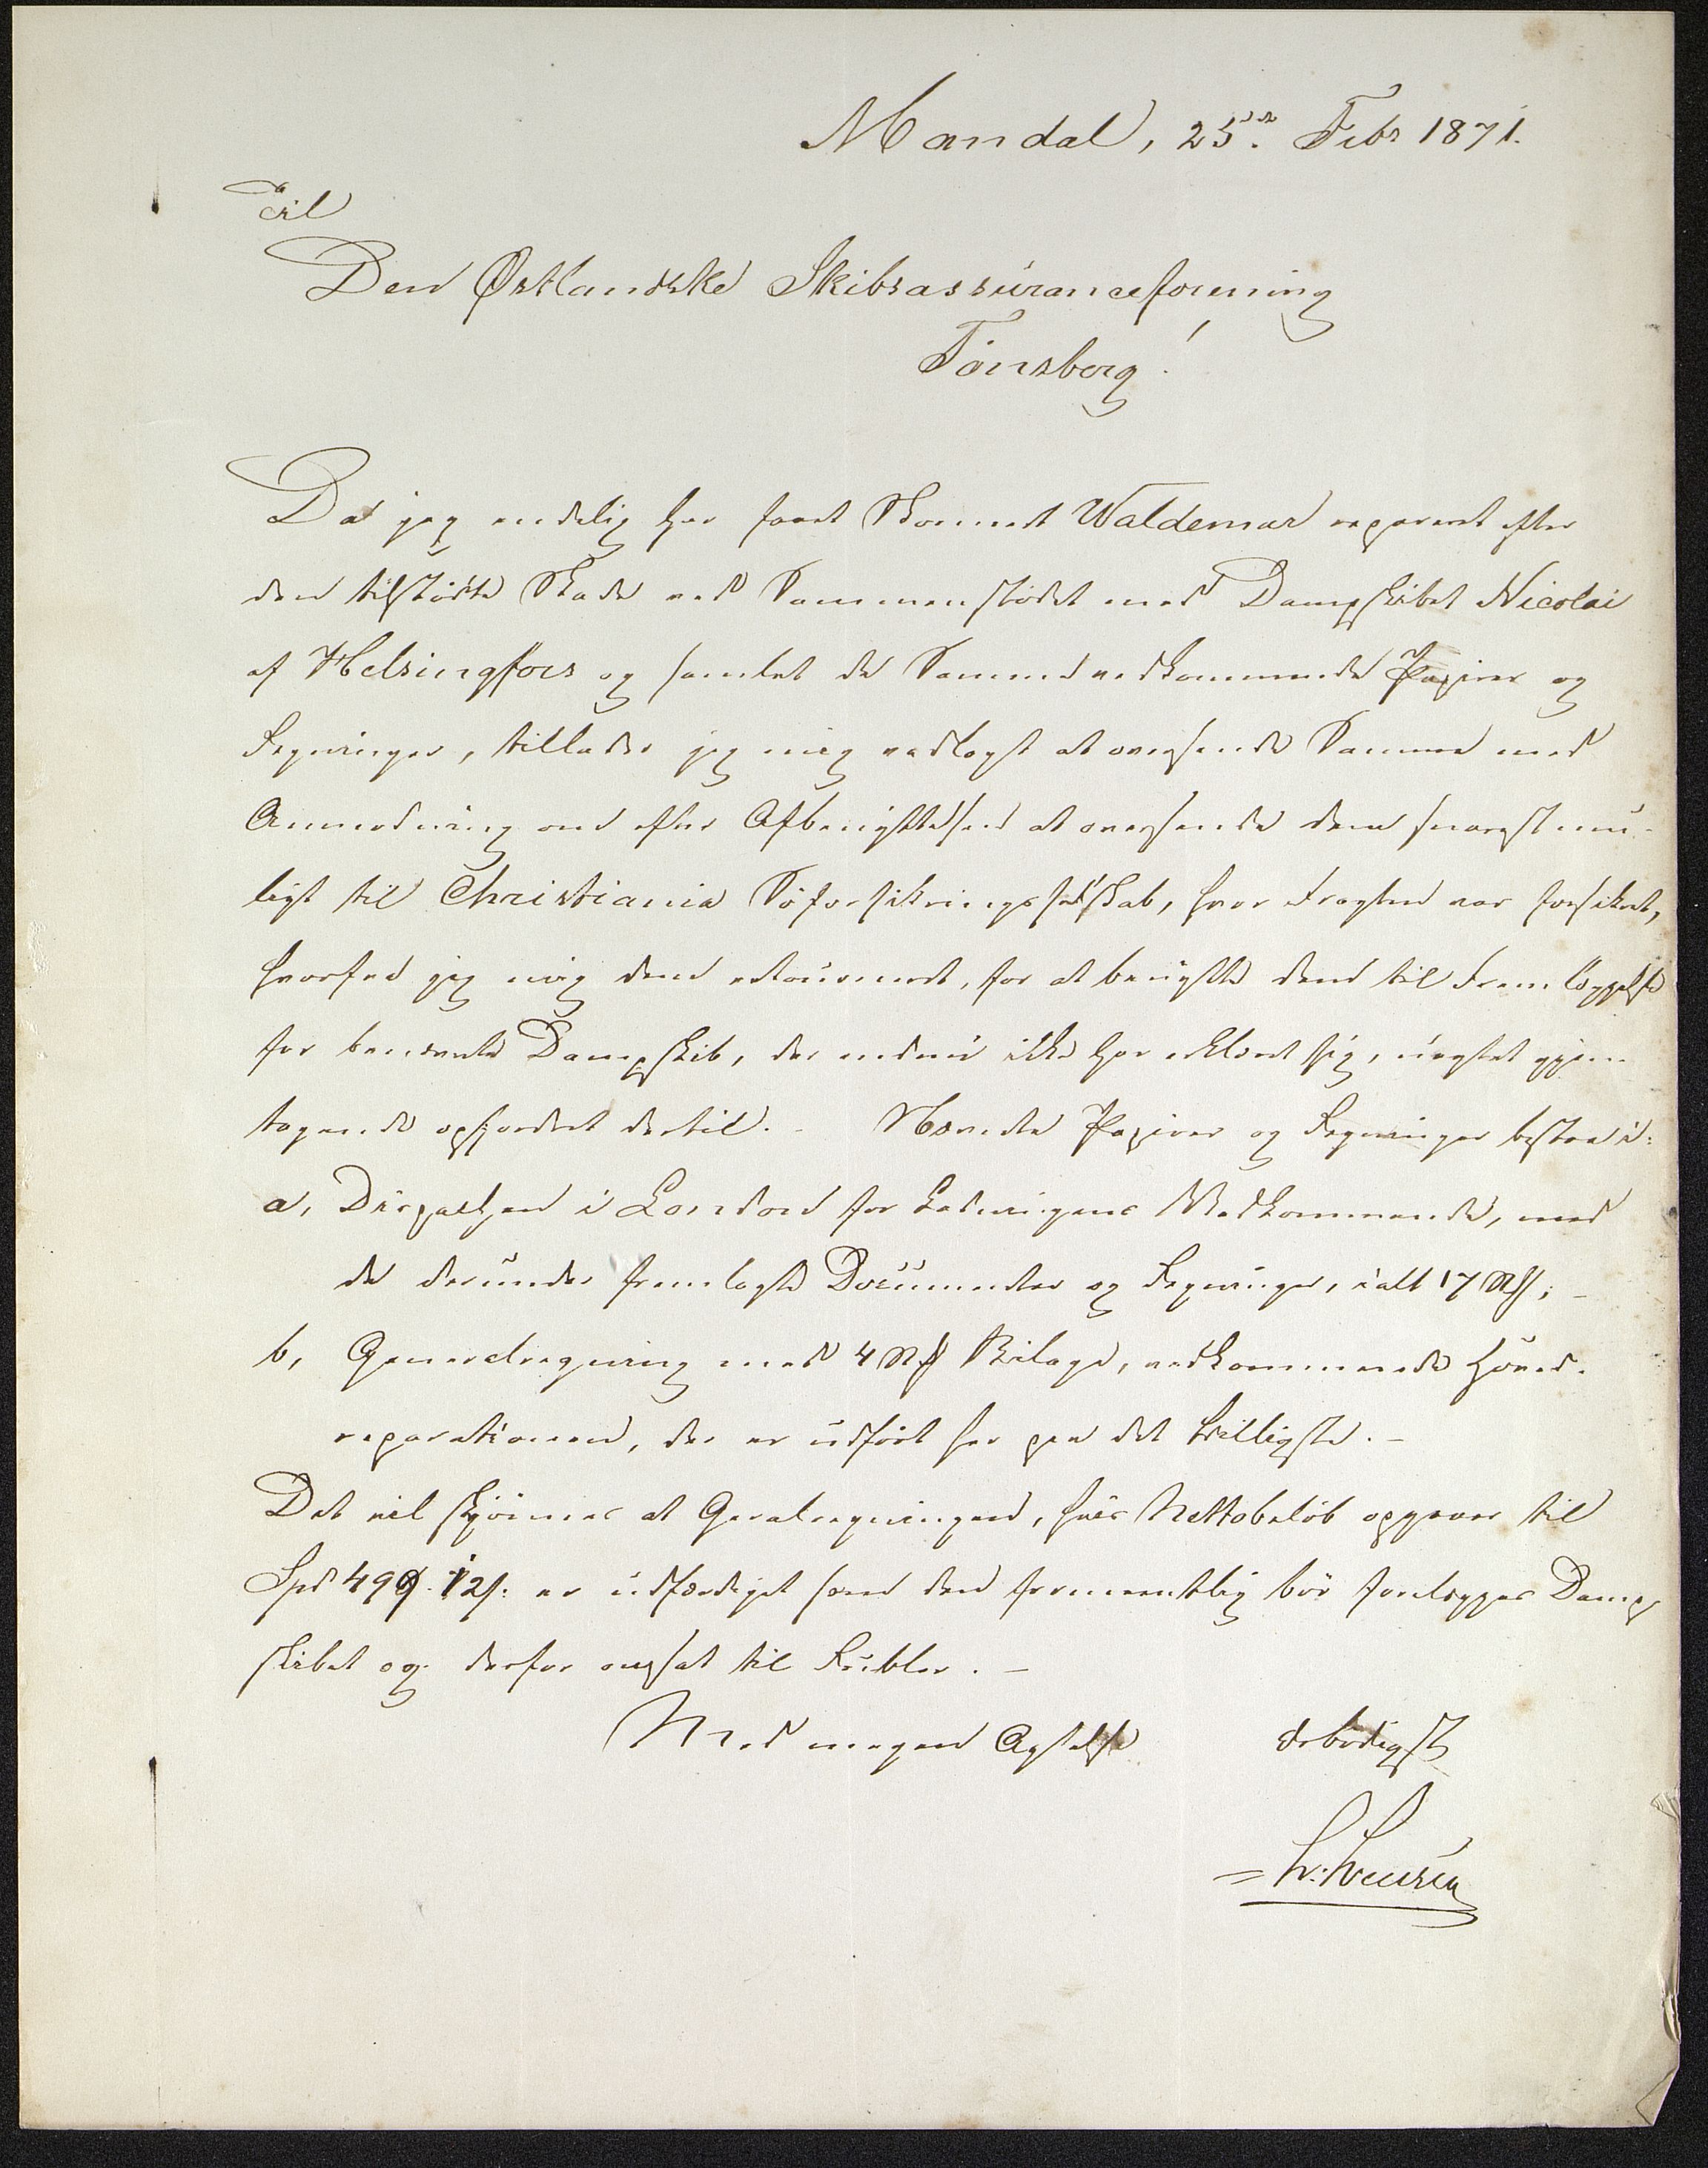 Mandal, 25de Febr 1871.
Til
Den Østlandske Skibsassuranceforening
Tönsberg!
Da jeg endelig har faaet Skonnert Waldemar repareret efter
den tilstödte Skade ved Sammenstödet med Dampskibet Nicolai
af Helsingfors og samlet de Samme vedkommende Papirer og
Regninger, tillader jeg mig vedlagt at oversende Samme med
Anmodning om efter Afbenyttelsen at oversende dem snarest mu-
ligt til Christiania Söforsikringsselskab, hvor Fragten var forsikret,
hvorfra jeg mig dem retourneret, for at benytte dem til Fremlæggelse
for benævnte Dampskib, der endnu ikke har erklæret sig, uagtet gjen-
tagende opfordret dertil. - Nævnte Papirer og Regninger bestaa i:
a, Dispachen i London for Ladningens Vedkommende, med
de derunder fremlagte Documenter og Regninger, ialt 17 No;
b, Generalregning med 4 No Bilage, vedkommende Hoved-
reparationen, der er udfört her paa det billigste. -
Det vil skjönnes at Generalregningen, hvis Nettobelöb opgaaer til
Spd 499. 12s: er udfærdiget som den formeentlig bör forelægges Damp
skibet og derfor ansat til Rubler. -
Med megen Agtelse ærbödigst